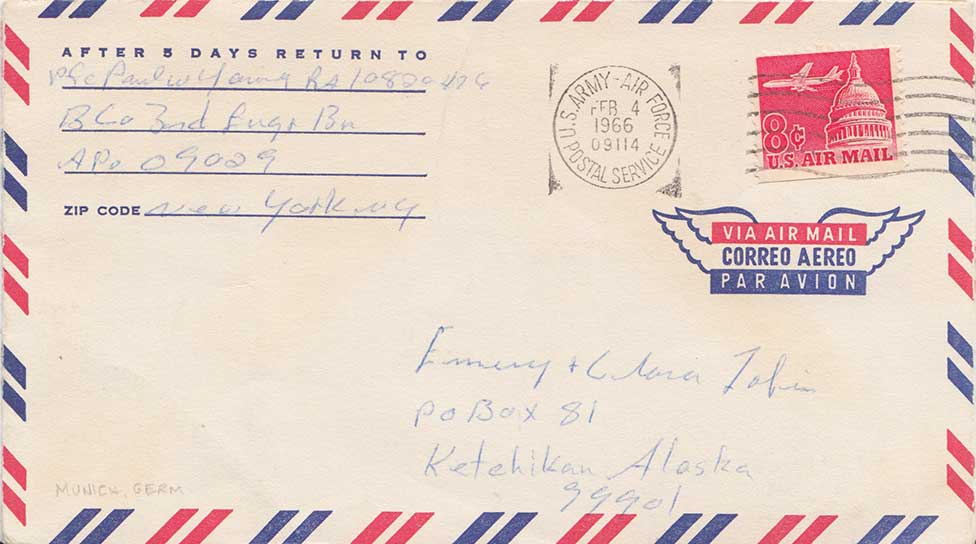 AFTER 5 DAYS RETURN TO
Pfc Paul W Young RA
B Co 3rd Engr Bn
APO 09029
ZIP CODE New York NY
U.S. ARMY-AIR FORCE
POSTAL SERVICE
FEB 4
1966
09114
8¢
U.S. AIR MAIL
VIA AIR MAIL
CORREO AEREO
PAR AVION
Emery + Clara Tobin
PO Box 81
Ketchikan Alaska
99901
MUNICH, GERM